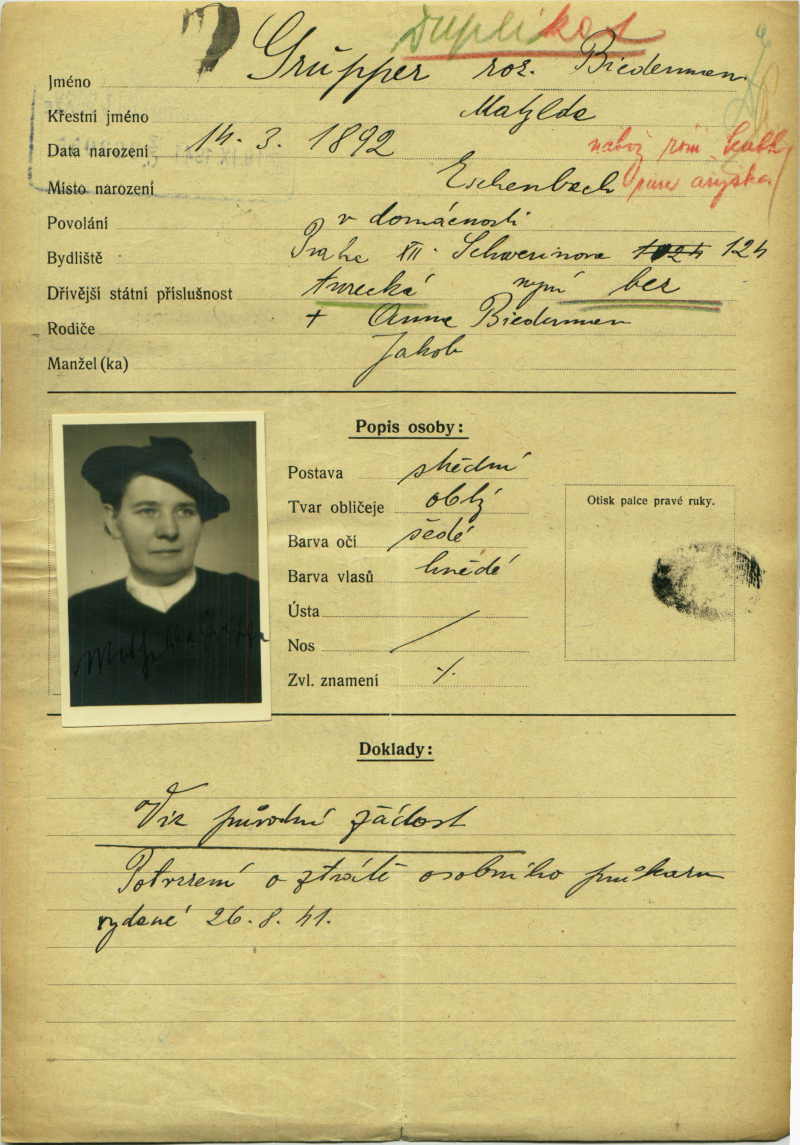 Duplikat
Jméno Grupper roz. Biederman
Křestní jméno Matylda
Data narození 14. 3. 1892
nábož řím kath
Místo narození Eschenbach
pures arijska
Povolání v domácnosti
Bydliště Praha XII. Schwerinova 1024 124
Dřívější státní příslušnost turecká nyní bez
Rodiče + Anna Biederman
Manžel (ka) Jakob
Popis osoby:
Postava střední
Tvar obličeje oblý
Barva očí šedé
Barva vlasů hnědé
Ústa
Nos
Zvl. znamení ·/.
Otisk palce pravé ruky.
Doklady:
Viz původní žádost
Potvrzení o ztrátě osobního průkazu
vydané 26. 8. 41.